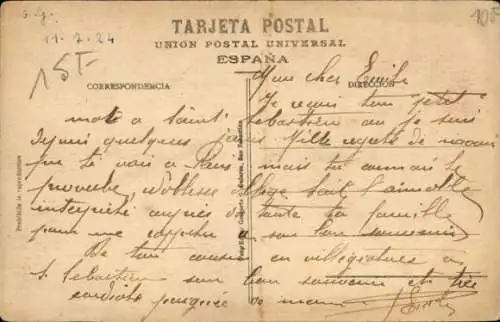 S. G.
11-7-24
15F
10F
TARJETA POSTAL
UNION POSTAL UNIVERSAL
ESPAÑA
CORRESPONDENCIA
DIRECCION
Mon cher Emile
Je reçois ton petit
mot a Saint Sebastien ou je suis
depuis quelques jours Mille regrets de n'avoir
pu te voir a Paris mais tu connais le
proverbe, Noblesse oblige
interprète auprès de toute ta famille
pour me rappeler a son bon souvenir
De ton cousin en villégiature a
S. Sebastien son bon souvenir et très
cordiale poignée de main
Prohibida la reproducción